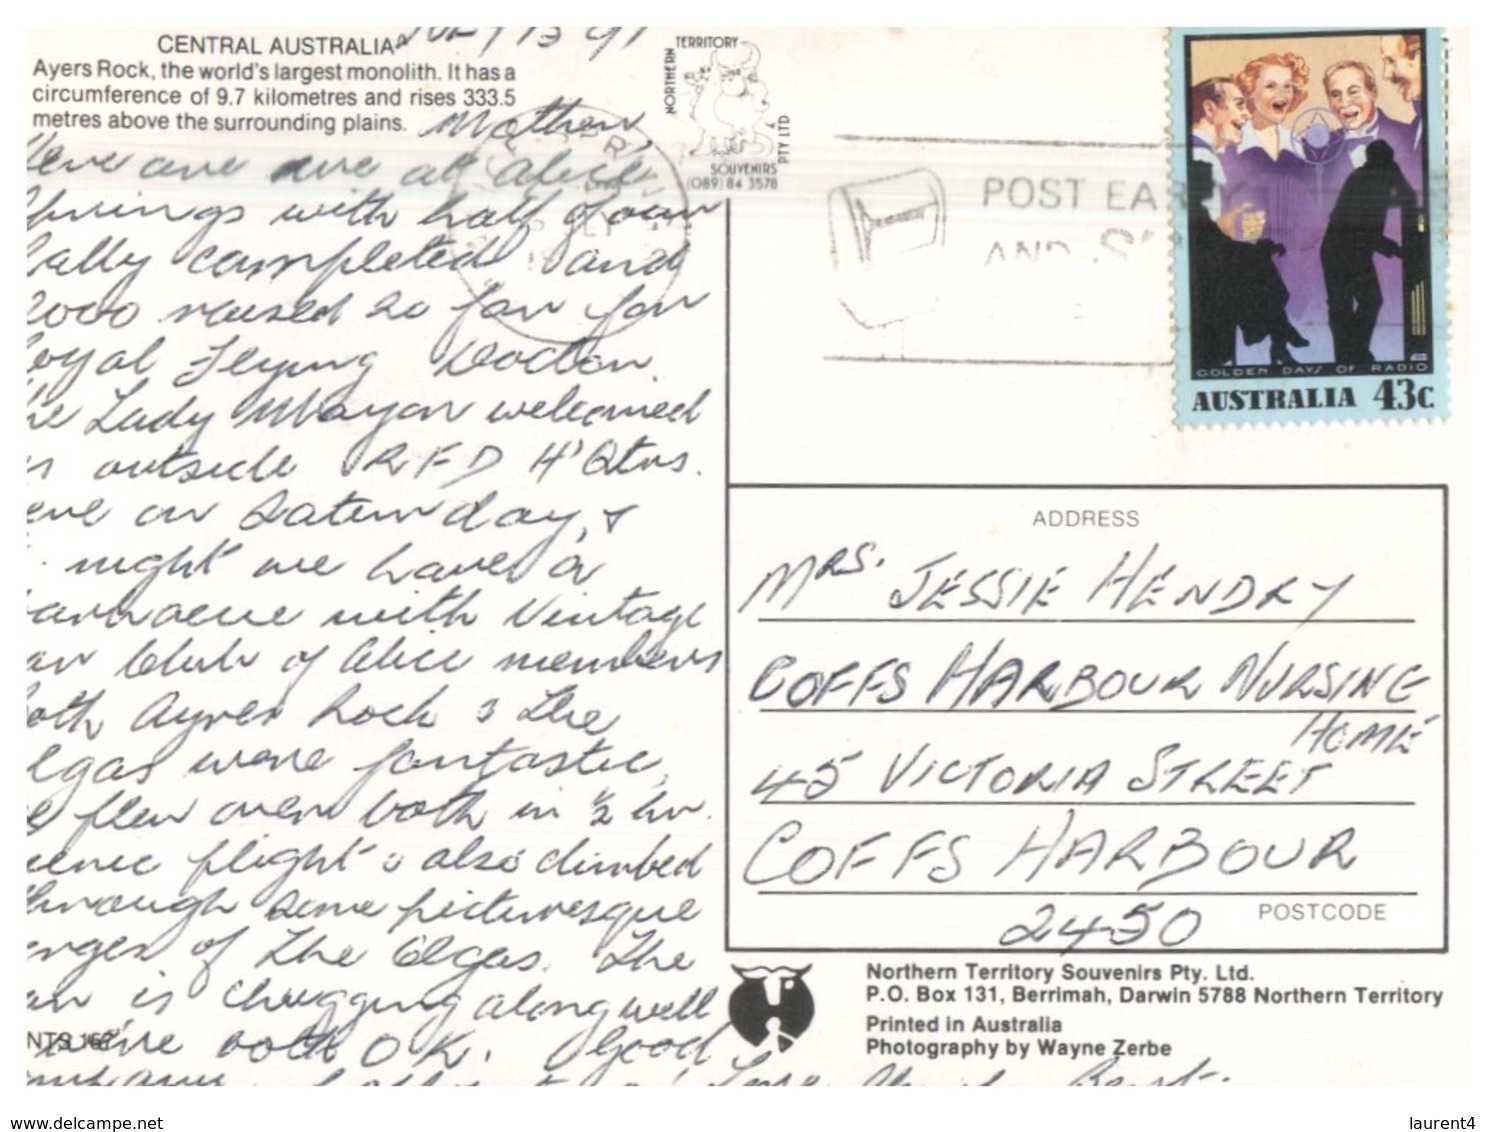 July 13 91
CENTRAL AUSTRALIA
Ayers Rock, the world's largest monolith. It has a
circumference of 9.7 kilometres and rises 333.5
metres above the surrounding plains.
Mother,
Here we are at Alice
Springs with half of our
rally completed and
2000 raised so far for
Royal Flying Doctor.
The Lady Mayor welcomed
us outside RFD H'Qtrs.
here on Saturday, &
night we have a
Barbacue with Vintage
Car Club of Alice members
Both Ayres Rock & the
Olgas were fantastic,
We flew over both in ½ hr.
scenic flight & also climbed
through some picturesque
gorges of the Olgas. The
car is chugging along well
we're both O.K. Good
company
NTS
NORTHERN TERRITORY SOUVENIRS PTY LTD
(089) 84 3578
POST EARLY
AND
GOLDEN DAYS OF RADIO
AUSTRALIA 43c
ADDRESS
MRS. JESSIE HENDRY
COFFS HARBOUR NURSING
HOME
45 VICTORIA STREET
COFFS HARBOUR
2450 POSTCODE
Northern Territory Souvenirs Pty. Ltd.
P.O. Box 131, Berrimah, Darwin 5788 Northern Territory
Printed in Australia
Photography by Wayne Zerbe
www.delcampe.net
laurent4